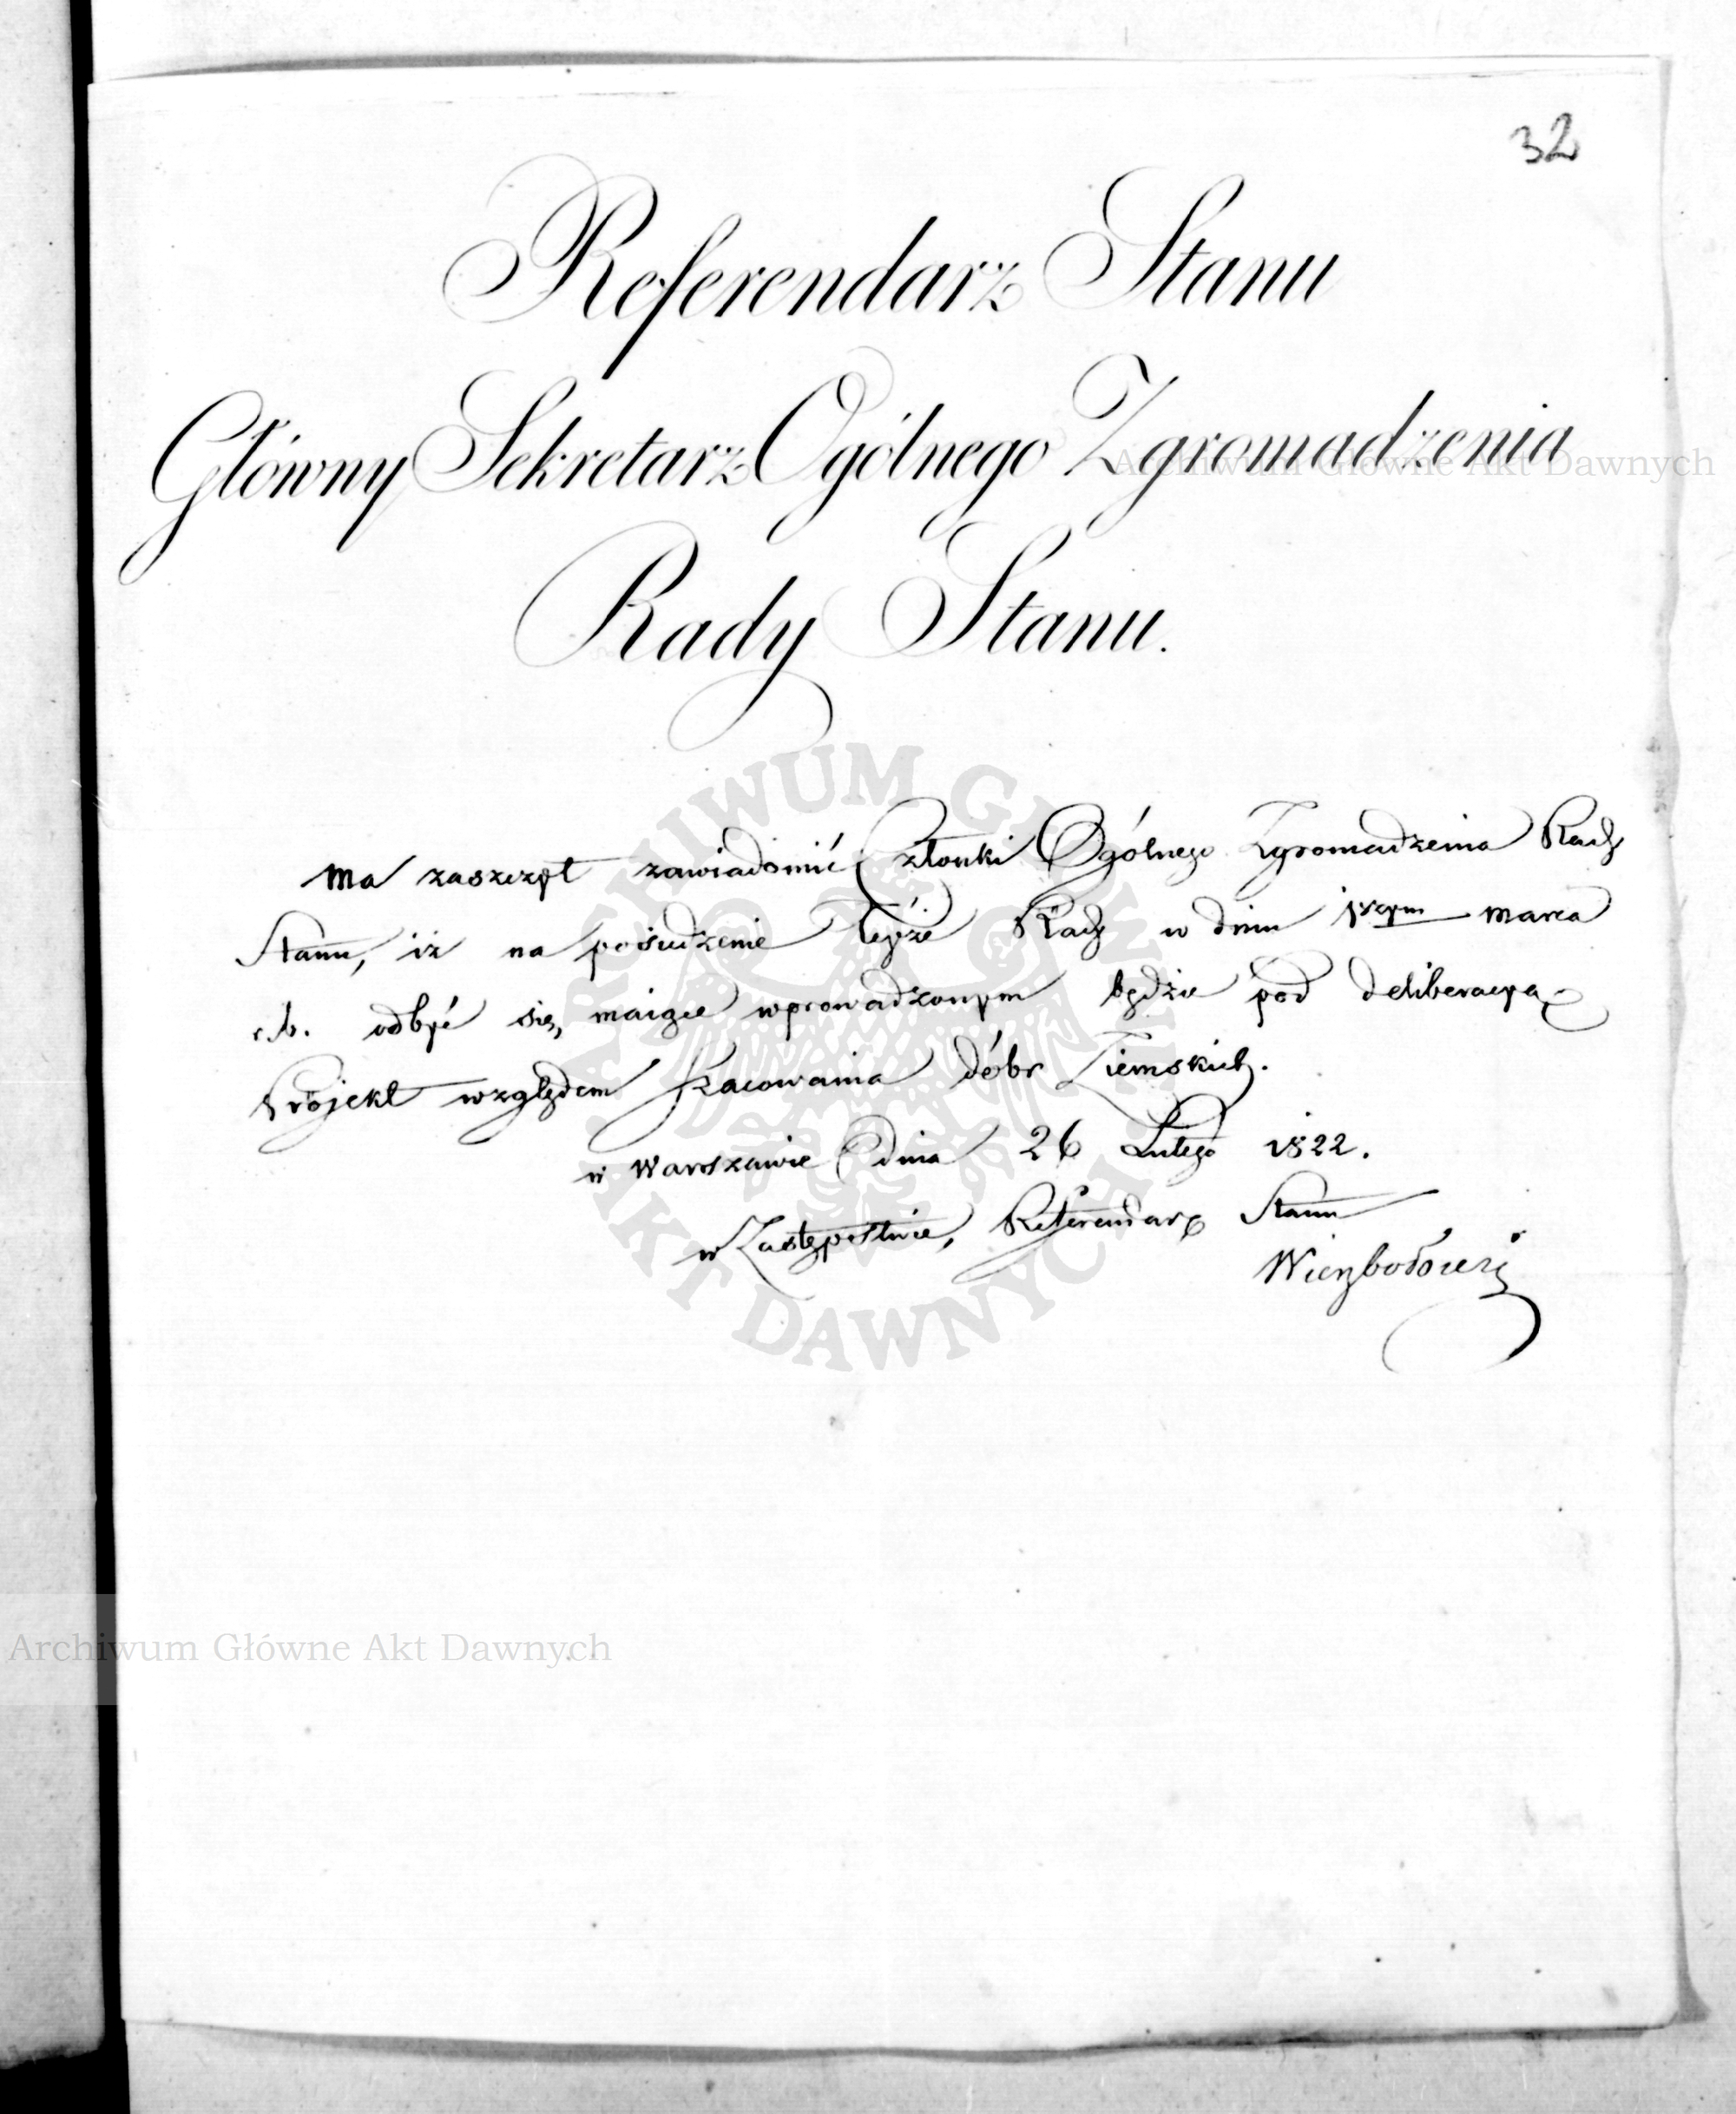 32
Referendarz Stanu
Główny Sekretarz Ogólnego Zgromadzenia
Rady Stanu.
Ma zaszczyt zawiadomić Członki Ogólnego Zgromadzenia Rady
Stanu, iż na posiedzenie teyże Rady w dniu 1szym marca
r.b. odbyć się, maiące wprowadzonym będzie pod deliberacyą
Projekt względem szacowania dóbr Ziemskich.
w Warszawie dnia 26 Lutego 1822.
w Zastępstwie, Referendarz Stanu
Archiwum Główne Akt Dawnych
ARCHIWUM GŁÓWNE AKT DAWNYCH
Archiwum Główne Akt Dawnych